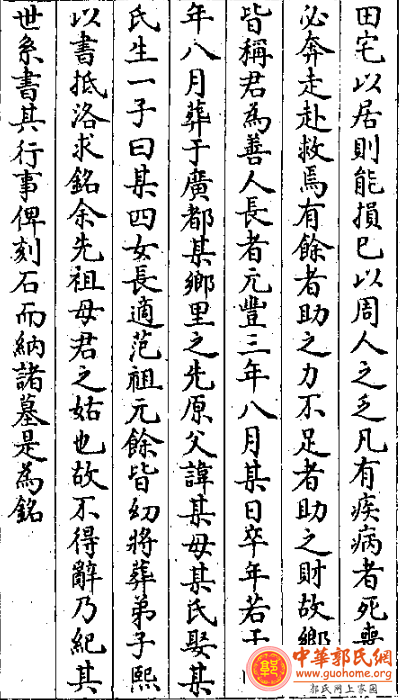 田宅以居則能損已以周人之乏凡有疾病者死喪
必奔走赴救焉有餘者助之力不足者助之財故鄉
皆稱君為善人長者元豐三年八月某日卒年若干
年八月葬于廣都某鄉里之先原父諱某母某氏娶某
氏生一子曰某四女長適范祖元餘皆幼將葬弟子熙
以書抵洛求銘余先祖母君之姑也故不得辭乃紀其
世系書其行事俾刻石而納諸墓是為銘
中華郭氏網
www.guohome.org
郭氏网上家园